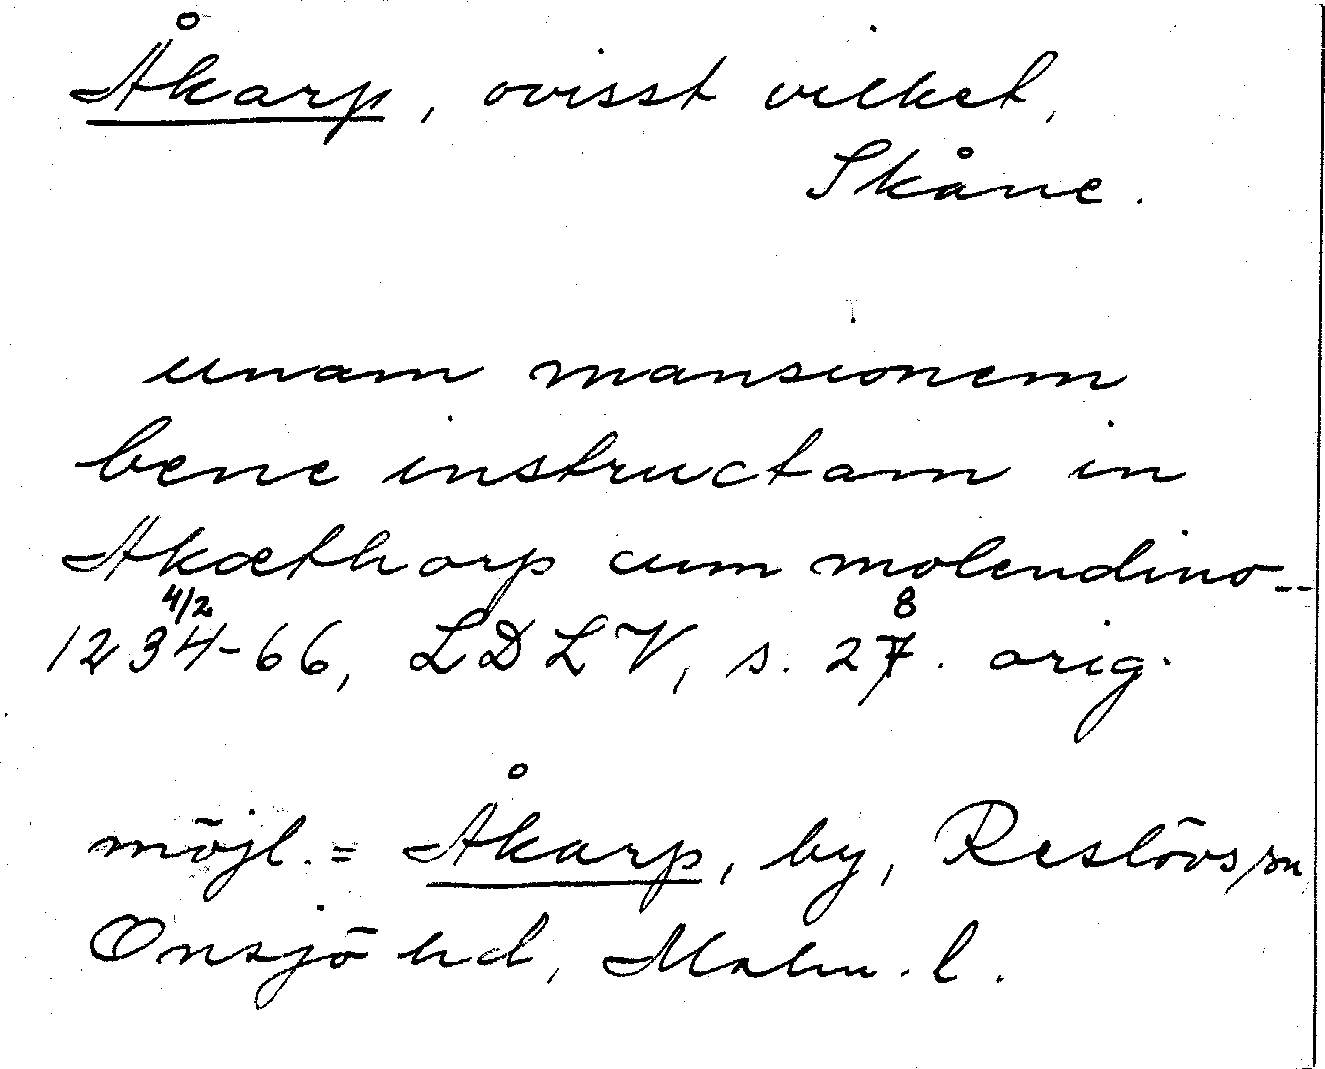 Åkarp, ovisst vilket,
Skåne.
unam mansionem
bene instructam in
Akæthorp cum molendino--
4/2 8
1234-66, LDLV, s. 27. orig.
möjl. = Åkarp, by, Reslövs sn
Onsjö hd, Malm. l.